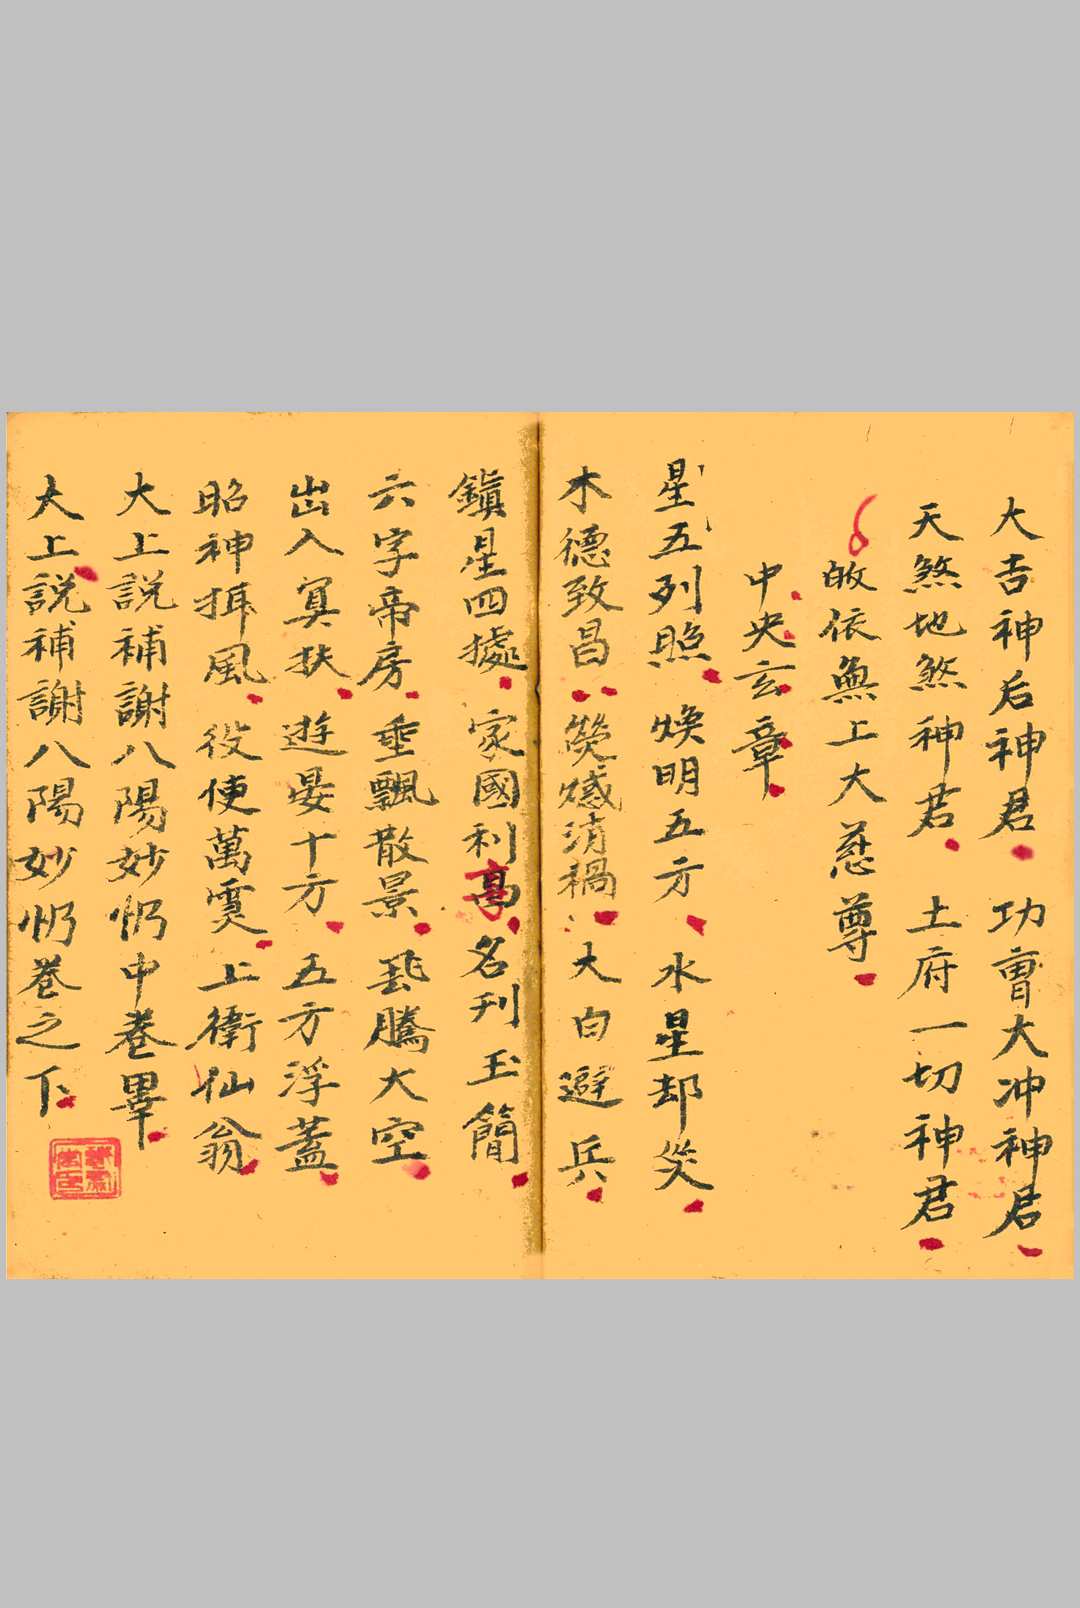 大吉神后神君 功曺大冲神君
天煞地煞神君 土府一切神君
皈依無上大慈尊
中央玄章
星五列照 煥明五方 水星却災
木德致昌 熒惑消禍 大白避兵
鎮星四據 家國利亨 名刋玉簡
六字帝房 乗飄散景 飛騰大空
出入冥扶 遊晏十方 五方浮蓋
昭神揖風 役使萬灵 上衛仙翁
大上説補謝八陽妙仍中巻畢
大上説補謝八陽妙仍巻之下